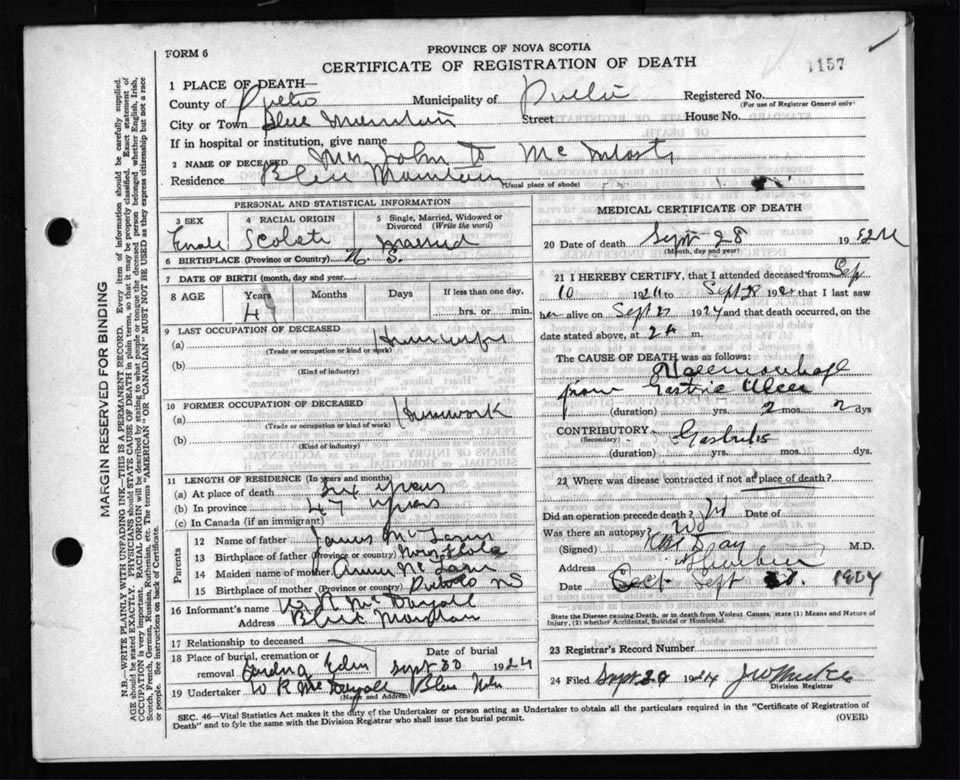 FORM 6
PROVINCE OF NOVA SCOTIA
CERTIFICATE OF REGISTRATION OF DEATH
1157
1 PLACE OF DEATH—
County of Pictou Municipality of Pictou Registered No.
(For use of Registrar General only)
City or Town Blue Mountain Street House No.
If in hospital or institution, give name
2 NAME OF DECEASED Mrs John D McIntosh
Residence Blue Mountain (Usual place of abode)
PERSONAL AND STATISTICAL INFORMATION
3 SEX 4 RACIAL ORIGIN 5 Single, Married, Widowed or Divorced (Write the word)
Female Scotch Married
6 BIRTHPLACE (Province or Country) N. S.
7 DATE OF BIRTH (month, day and year)
8 AGE Years Months Days If less than one day,
47 hrs. or min.
9 LAST OCCUPATION OF DECEASED
(a) Housewife
(Trade or occupation or kind of work)
(b)
(Kind of industry)
10 FORMER OCCUPATION OF DECEASED
(a) Housework
(Trade or occupation or kind of work)
(b)
(Kind of industry)
11 LENGTH OF RESIDENCE (In years and months)
(a) At place of death six years
(b) In province 47 years
(c) In Canada (if an immigrant)
Parents
12 Name of father James
13 Birthplace of father (Province or country) Nova Scotia
14 Maiden name of mother
15 Birthplace of mother (Province or country) Pictou NS
16 Informant's name
Address Blue Mountain
17 Relationship to deceased
18 Place of burial, cremation or removal Date of burial
Sept 30 1924
19 Undertaker Blue Mtn
(Name and Address)
MEDICAL CERTIFICATE OF DEATH
20 Date of death Sept 28 1924
(Month, day and year)
21 I HEREBY CERTIFY, that I attended deceased from Sep
10 1924 to Sept 28 1924 that I last saw
her alive on Sept 27 1924 and that death occurred, on
date stated above, at 2 a m.
The CAUSE OF DEATH was as follows:
Haemorrhage
from Gastric Ulcer
(duration) yrs. 2 mos. 2 dys
CONTRIBUTORY Gastritis
(Secondary)
(duration) yrs. mos. dys.
22 Where was disease contracted if not at place of death?
Did an operation precede death? Date of
Was there an autopsy? No
(Signed) M.D.
Address
Date Sept 1924
State the Disease causing Death, or in death from Violent Causes, state (1) Means and Nature of
Injury, (2) whether Accidental, Suicidal or Homicidal.
23 Registrar's Record Number
24 Filed Sept 29 1924
Division Registrar
SEC. 46—Vital Statistics Act makes it the duty of the Undertaker or person acting as Undertaker to obtain all the particulars required in the "Certificate of Registration of
Death" and to fyle the same with the Division Registrar who shall issue the burial permit. (OVER)
MARGIN RESERVED FOR BINDING
N.B.—WRITE PLAINLY WITH UNFADING INK—THIS IS A PERMANENT RECORD. Every item of information should be carefully supplied.
AGE should be stated EXACTLY. PHYSICIANS should STATE CAUSE OF DEATH in plain terms, so that it may be properly classified. Exact statement of
OCCUPATION is very important. RACIAL ORIGIN will be described by stating to what people or tongue the deceased person belonged whether English, Irish,
Scotch, French, German, Russian, Ruthenian, etc. The terms "AMERICAN" or "CANADIAN" MUST NOT BE USED as they express citizenship but not a race
or people. See instructions on back of Certificate.